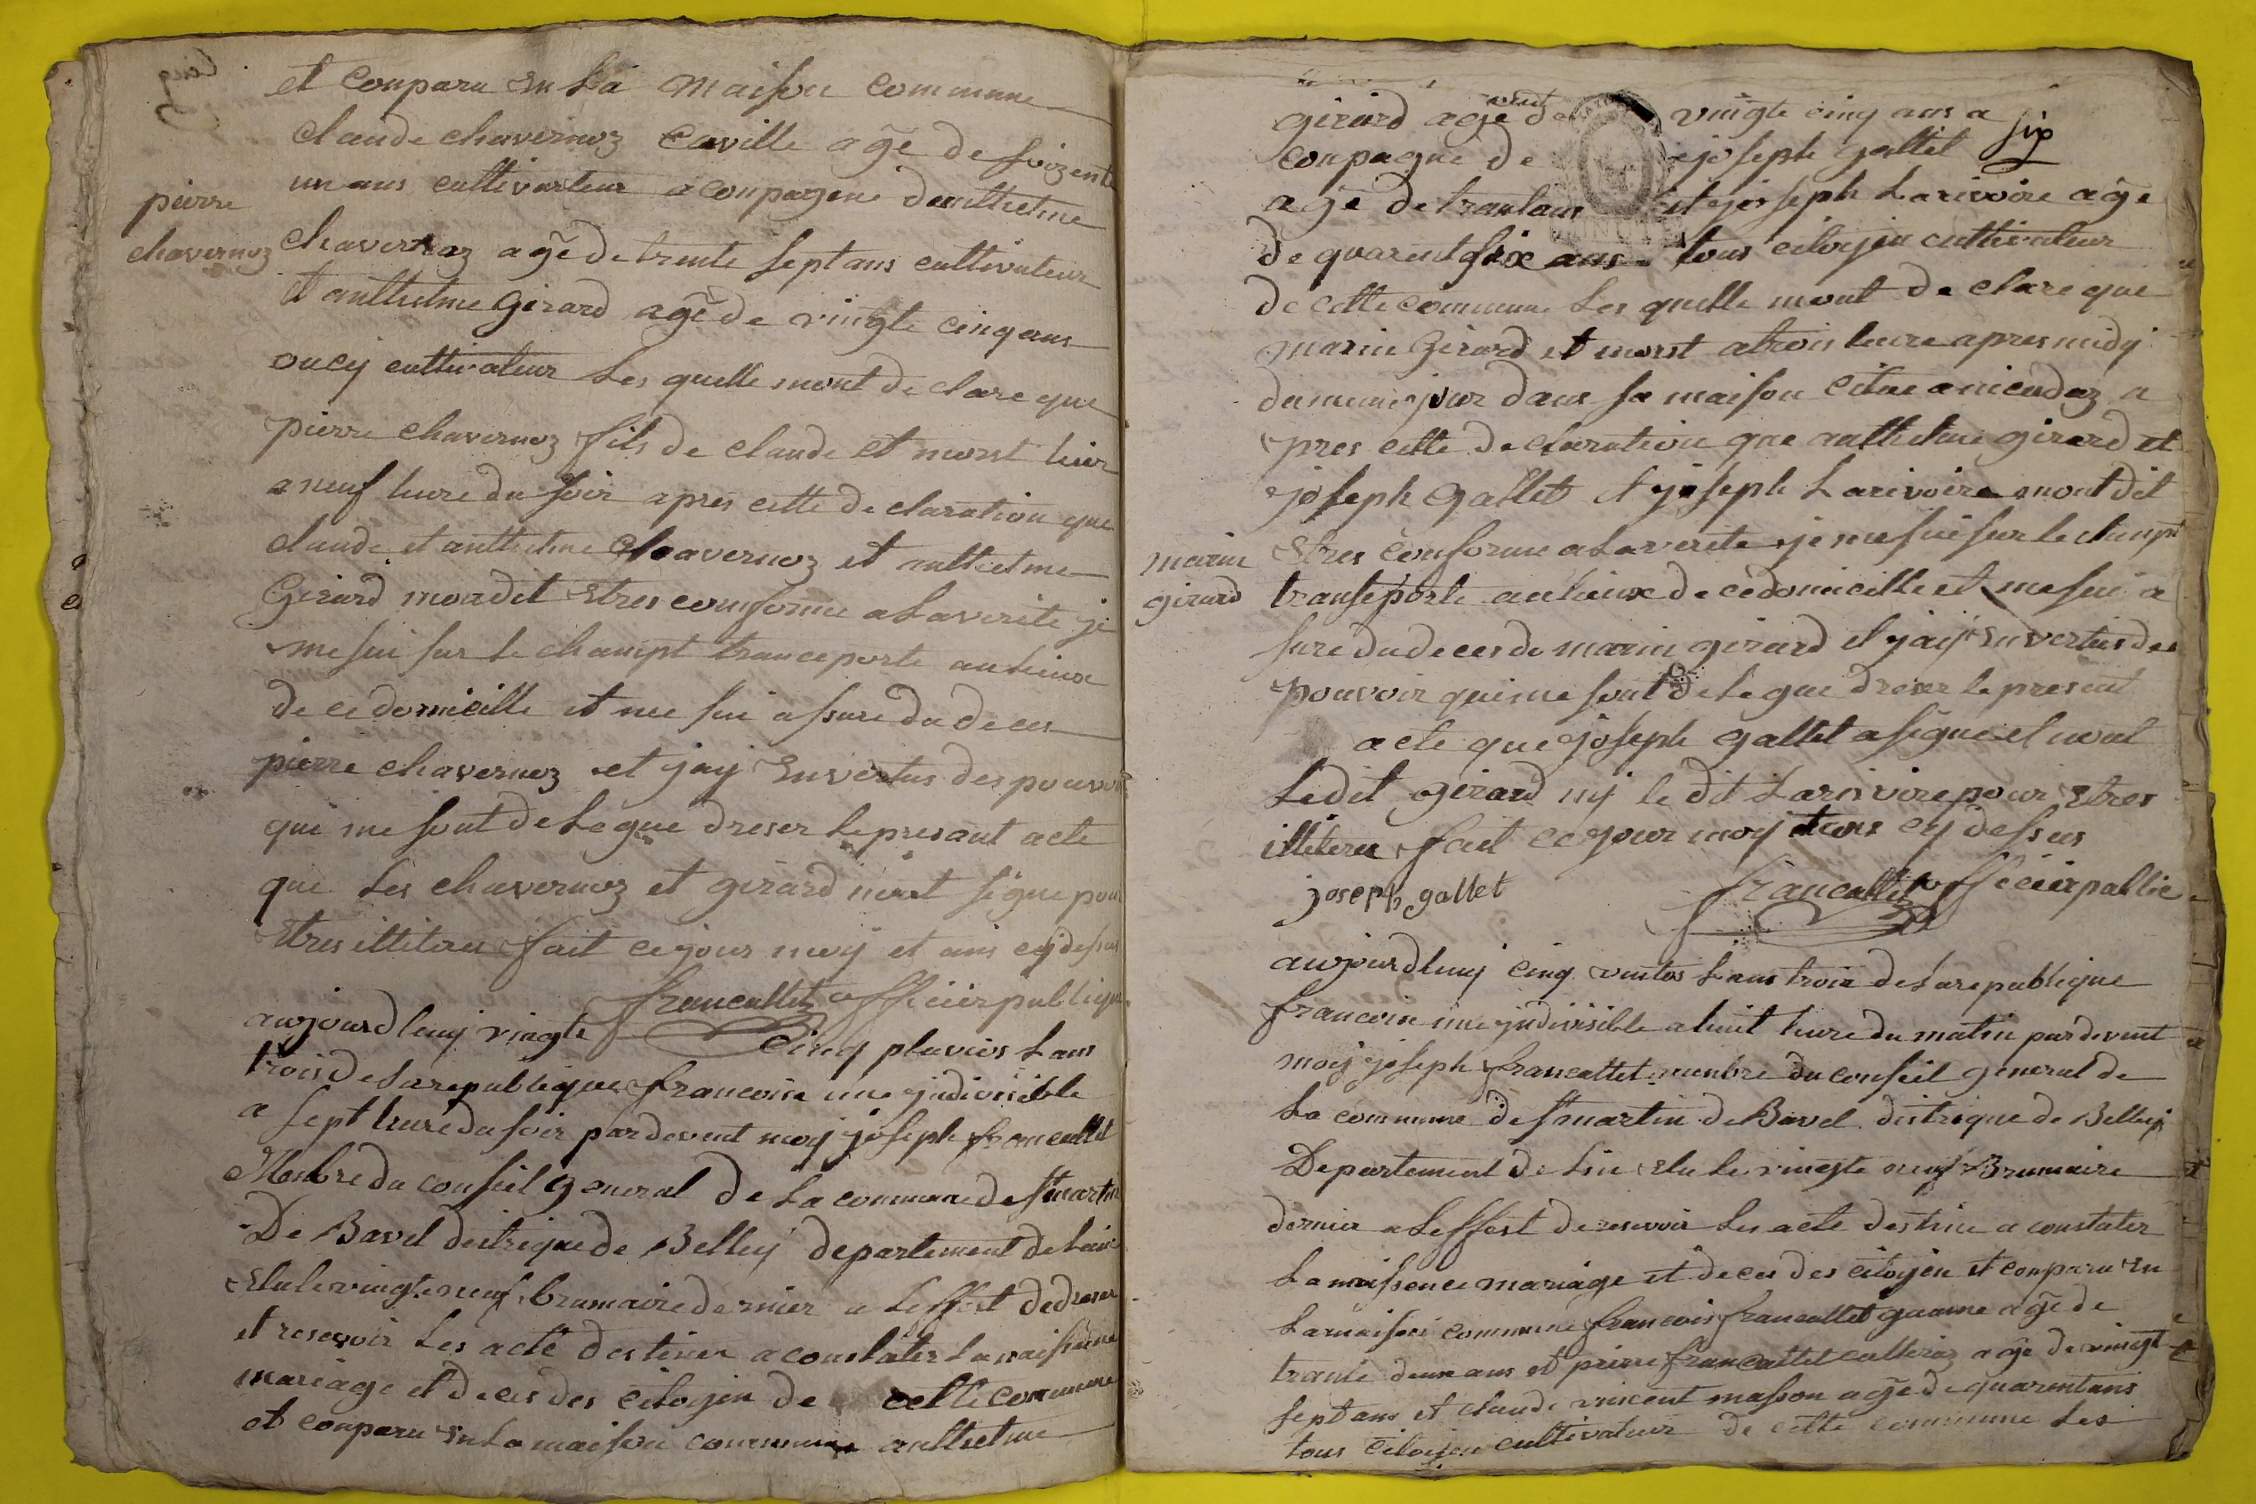 et conparu en la maison commune
claude chavernoz caville agé de soizente
un ans cultivarteur aconpagene danthelme
pierre
chavernoz
chavernoz agé de trente sept ans cultivateur
et anthelme girard agé de vingte cinq ans
oucy cultivateur les quelle mont de clare que
pierre chavernoz fils de claude et morst hier
a neuf heure du soir apres cette de claration que
claude et anthelme chavernoz et anthelme
Girard mondit Etres comforme a la verite je
me sui sur le champt tranceporte au lieux
de ce domicille et me sui assure du de ces
pierre chavernoz et jay en vertus des pouvoir
qui me sont de legue dreser le presant acte
que les chavernoz et girard nont signe pour
Etres illitere fait ce jour moy et ans cy dessus
francallet officier publique
aujourdhuy vingte cinq pluvios lans
trois de la republique francoise une jndivisible
a sept heure du soir pardevent moy joseph francallet
Menbre du conseil general de la commune de st martin
De Bavel destrique de Belley departement de lain
Elu le vingte neuf brumaire dernier a leffest de dreser
et resevoir les acte destiner a constater la naissence
mariage et deces des citoyen de cette commune
et conparu en la maison commune anthelme
six
girard agé de vingte cinq ans a
conpagne de joseph gallet
agé de trantans et joseph Larivoire agé
de quarent six ans tous citoyin cultivateur
de cette commune les quelle mont de clare que
marin Girard et morst a trois heure apres midy
du meme jour dans sa maison citue a niendaz a
pres cette de claration que anthelme girard et
joseph Gallet et joseph Larivoire mont dit
marin
girard
Etres comforme a la verite je me sui sur le champt
transeporte au lieux de ce domicille et me sui a
sure du deces de marin girard et jay en vertus des
pouvoir qui me sont de legue dreser le present
acte que joseph gallet a signe et nont
ledit girard ny le dit Larivoire pour Etres
illitere fait ce jour moy et ans cy dessus
joseph gallet francallet officier public
aujourdhuy cinq ventos lans trois de la republique
francoise une jndivisible a huit heure du matin pardevent
moy joseph francallet menbre du conseil general de
la commune de st martin de Bavel distrique de Belley
Departement de lin Elu le vingte neuf Brumaire
dernier a leffest de resevoir les acte destine a constater
la naissence mariage et deces des citoyen et conparu en
la maison commune francois francallet agé de
trante deux ans et pierre francallet agé de vingt
sept ans et claude vincent masson agé de quarentans
tous citoyen cultivateur de cette commune les